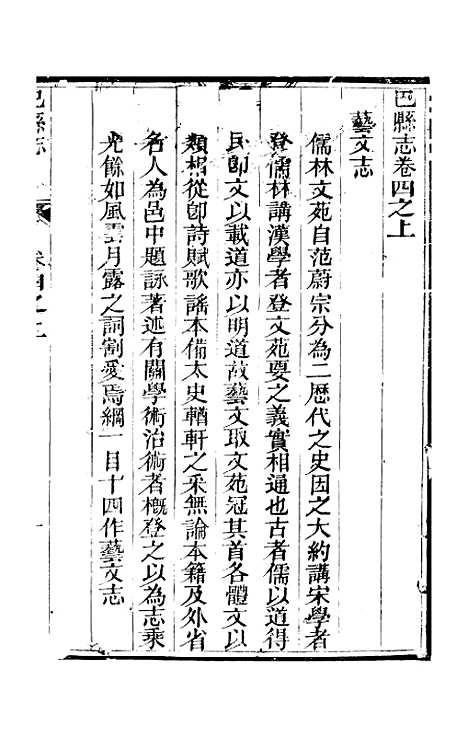 巴縣志卷四之上
藝文志
儒林文苑自范蔚宗分為二歴代之史因之大約講宋學者
登儒林講漢學者登文苑要之義實相通也古者儒以道得
民卽文以載道亦以明道故藝文取文苑冠其首各體文以
類相從卽詩賦歌謠本備太史輶軒之采無論本籍及外省
名人為邑中題詠著述有關學術治術者槪登之以為志乘
光餘如風雲月露之詞割愛焉綱一目十四作藝文志
巴縣志
卷四之上
一